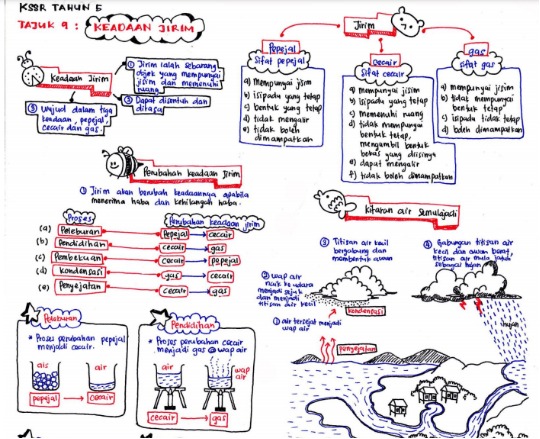 KSSR TAHUN 5
TAJUK 9 : KEADAAN JIRIM
Keadaan Jirim
① Jirim ialah sebarang
objek yang mempunyai
jisim dan memenuhi
ruang
② Dapat disentuh dan
dirasa
③ Wujud dalam tiga
keadaan, pepejal,
cecair dan gas.
Jirim
Pepejal
Sifat pepejal
a) mempunyai jisim
b) isipadu yang tetap
c) bentuk yang tetap
d) tidak mengalir
e) tidak boleh
dimampatkan
cecair
Sifat cecair
a) mempunyai jisim
b) isipadu yang tetap
c) memenuhi ruang
d) tidak mempunyai
bentuk tetap,
mengambil bentuk
bekas yang diisinya
e) dapat mengalir
f) tidak boleh dimampatkan
gas
Sifat gas
a) mempunyai jisim
b) tidak mempunyai
bentuk tetap
c) isipadu tidak tetap
d) boleh dimampatkan
Perubahan keadaan Jirim
① Jirim akan berubah keadaannya apabila
menerima haba dan kehilangan haba.
Proses
Perubahan keadaan jirim
(a) Peleburan Pepejal cecair
(b) Pendidihan cecair gas
(c) Pembekuan cecair pepejal
(d) kondensasi gas cecair
(e) Penyejatan cecair gas
Peleburan
* Proses perubahan pepejal
menjadi cecair.
ais
air
pepejal cecair
Pendidihan
* Proses perubahan cecair
menjadi gas @ wap air
air
wap
air
cecair gas
kitaran air semulajadi
③ Titisan air kecil
bergabung dan
membentuk awan
④ Gabungan titisan air
kecil dan awan berat,
titisan air mula jatuh
sebagai hujan
② wap air
naik ke udara
menjadi sejuk
dan menjadi
titisan air kecil
kondensasi
① air tersejat menjadi
wap air
Penyejatan
hujan